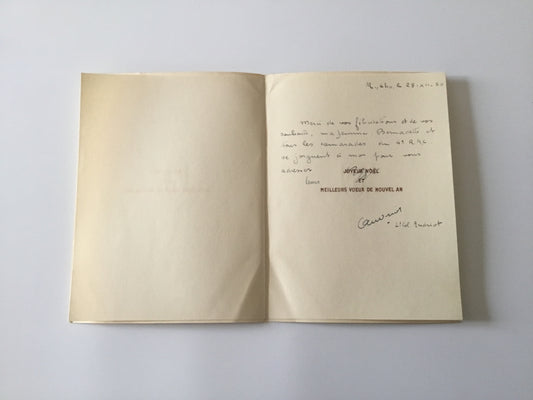 le 28
Merci de vos félicitations et de vos
souhaits, ma femme Bernadette et
tous les camarades du 4e
se joignent à moi pour vous
adresser
leurs
JOYEUX NOËL
ET
MEILLEURS VOEUX DE NOUVEL AN